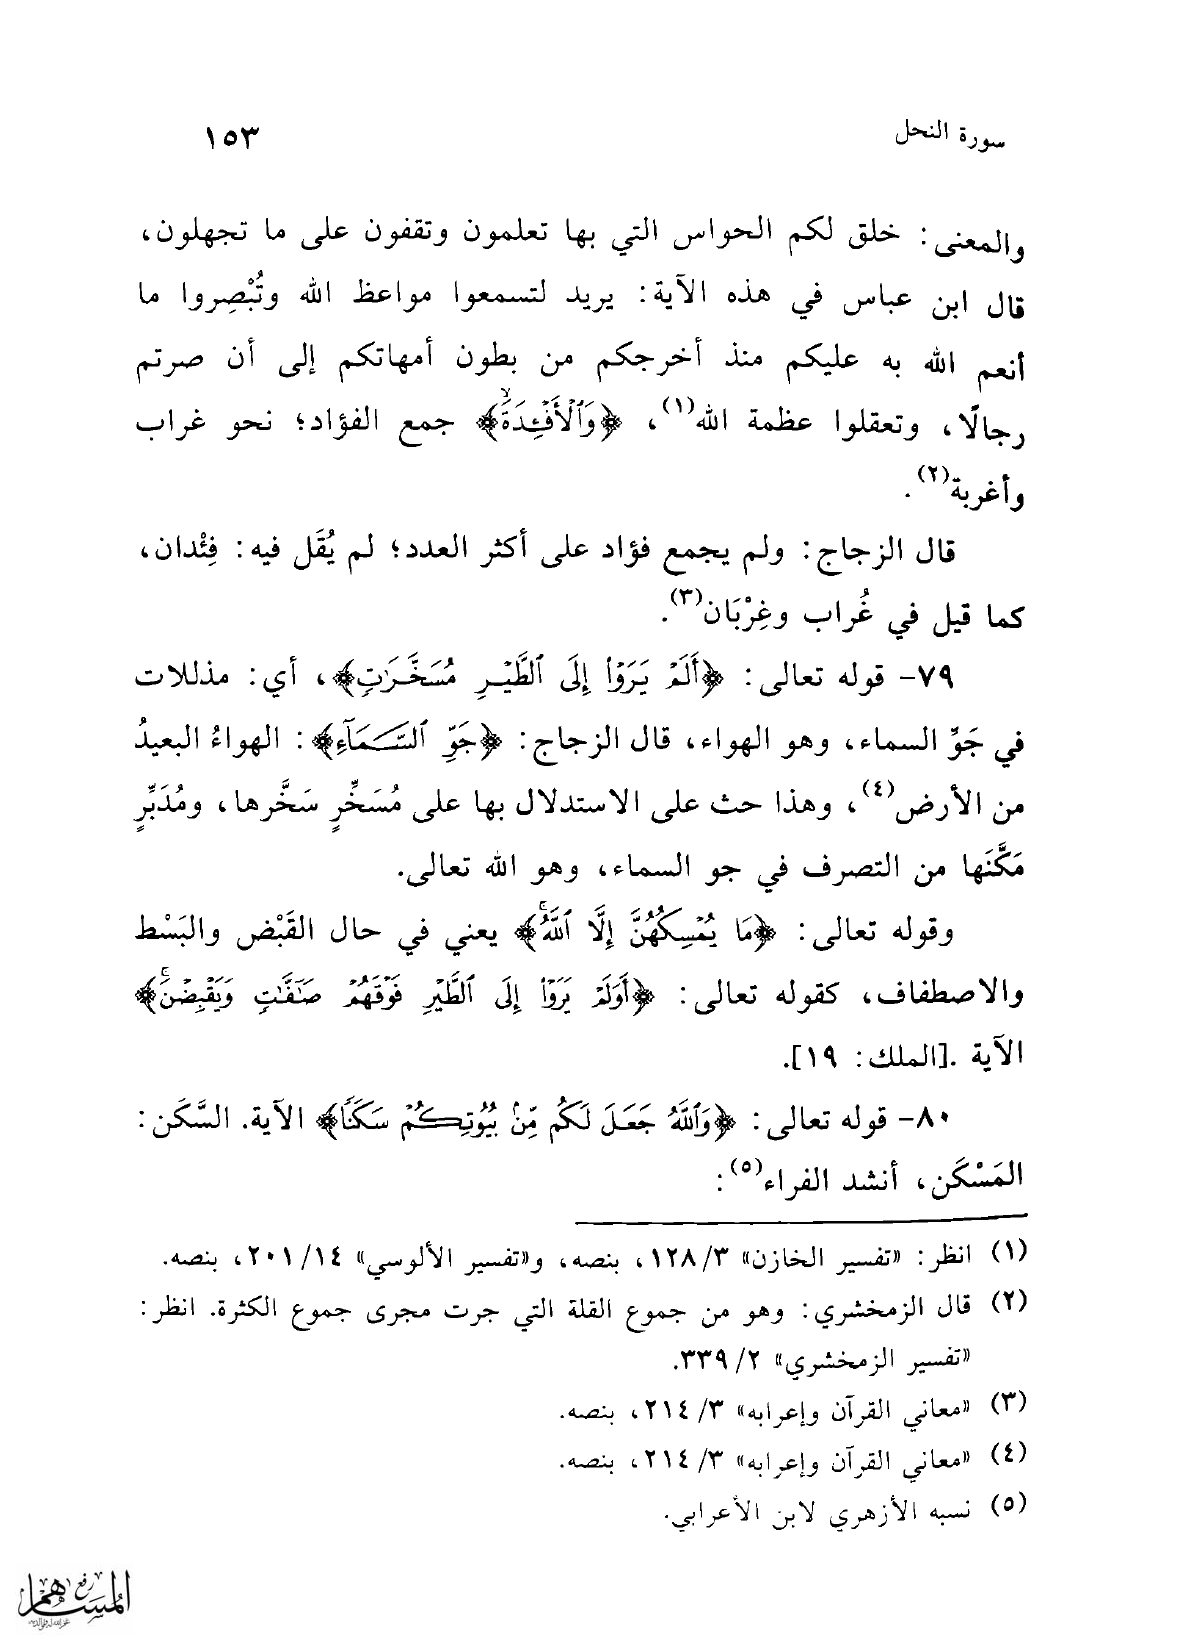 سورة النحل
١٥٣
والمعنى: خلق لكم الحواس التي بها تعلمون وتقفون على ما تجهلون،
قال ابن عباس في هذه الآية: يريد لتسمعوا مواعظ الله وتُبْصِروا ما
أنعم الله به عليكم منذ أخرجكم من بطون أمهاتكم إلى أن صرتم
رجالًا، وتعقلوا عظمة الله(١)، ﴿وَٱلْأَفْـِٔدَةَۙ﴾ جمع الفؤاد؛ نحو غراب
وأغربة(٢).
قال الزجاج: ولم يجمع فؤاد على أكثر العدد؛ لم يُقَل فيه: فِئْدان،
كما قيل في غُراب وغِرْبَان(٣).
٧٩- قوله تعالى: ﴿أَلَمْ يَرَوْا۟ إِلَى ٱلطَّيْرِ مُسَخَّرَٰتٍ﴾، أي: مذللات
في جَوِّ السماء، وهو الهواء، قال الزجاج: ﴿جَوِّ ٱلسَّمَآءِ﴾: الهواءُ البعيدُ
من الأرض(٤)، وهذا حث على الاستدلال بها على مُسَخِّرٍ سَخَّرها، ومُدَبِّرٍ
مَكَّنَها من التصرف في جو السماء، وهو الله تعالى.
وقوله تعالى: ﴿مَا يُمْسِكُهُنَّ إِلَّا ٱللَّهُۚ﴾ يعني في حال القَبْض والبَسْط
والاصطفاف، كقوله تعالى: ﴿أَوَلَمْ يَرَوْا۟ إِلَى ٱلطَّيْرِ فَوْقَهُمْ صَٰٓفَّٰتٍ وَيَقْبِضْنَۚ﴾
الآية .[الملك: ١٩].
٨٠- قوله تعالى: ﴿وَٱللَّهُ جَعَلَ لَكُم مِّنۢ بُيُوتِكُمْ سَكَنًا﴾ الآية. السَّكَن:
المَسْكَن، أنشد الفراء(٥):
(١) انظر: «تفسير الخازن» ٣/ ١٢٨، بنصه، و«تفسير الألوسي» ١٤/ ٢٠١، بنصه.
(٢) قال الزمخشري: وهو من جموع القلة التي جرت مجرى جموع الكثرة. انظر:
«تفسير الزمخشري» ٢/ ٣٣٩.
(٣) «معاني القرآن وإعرابه» ٣/ ٢١٤، بنصه.
(٤) «معاني القرآن وإعرابه» ٣/ ٢١٤، بنصه.
(٥) نسبه الأزهري لابن الأعرابي.